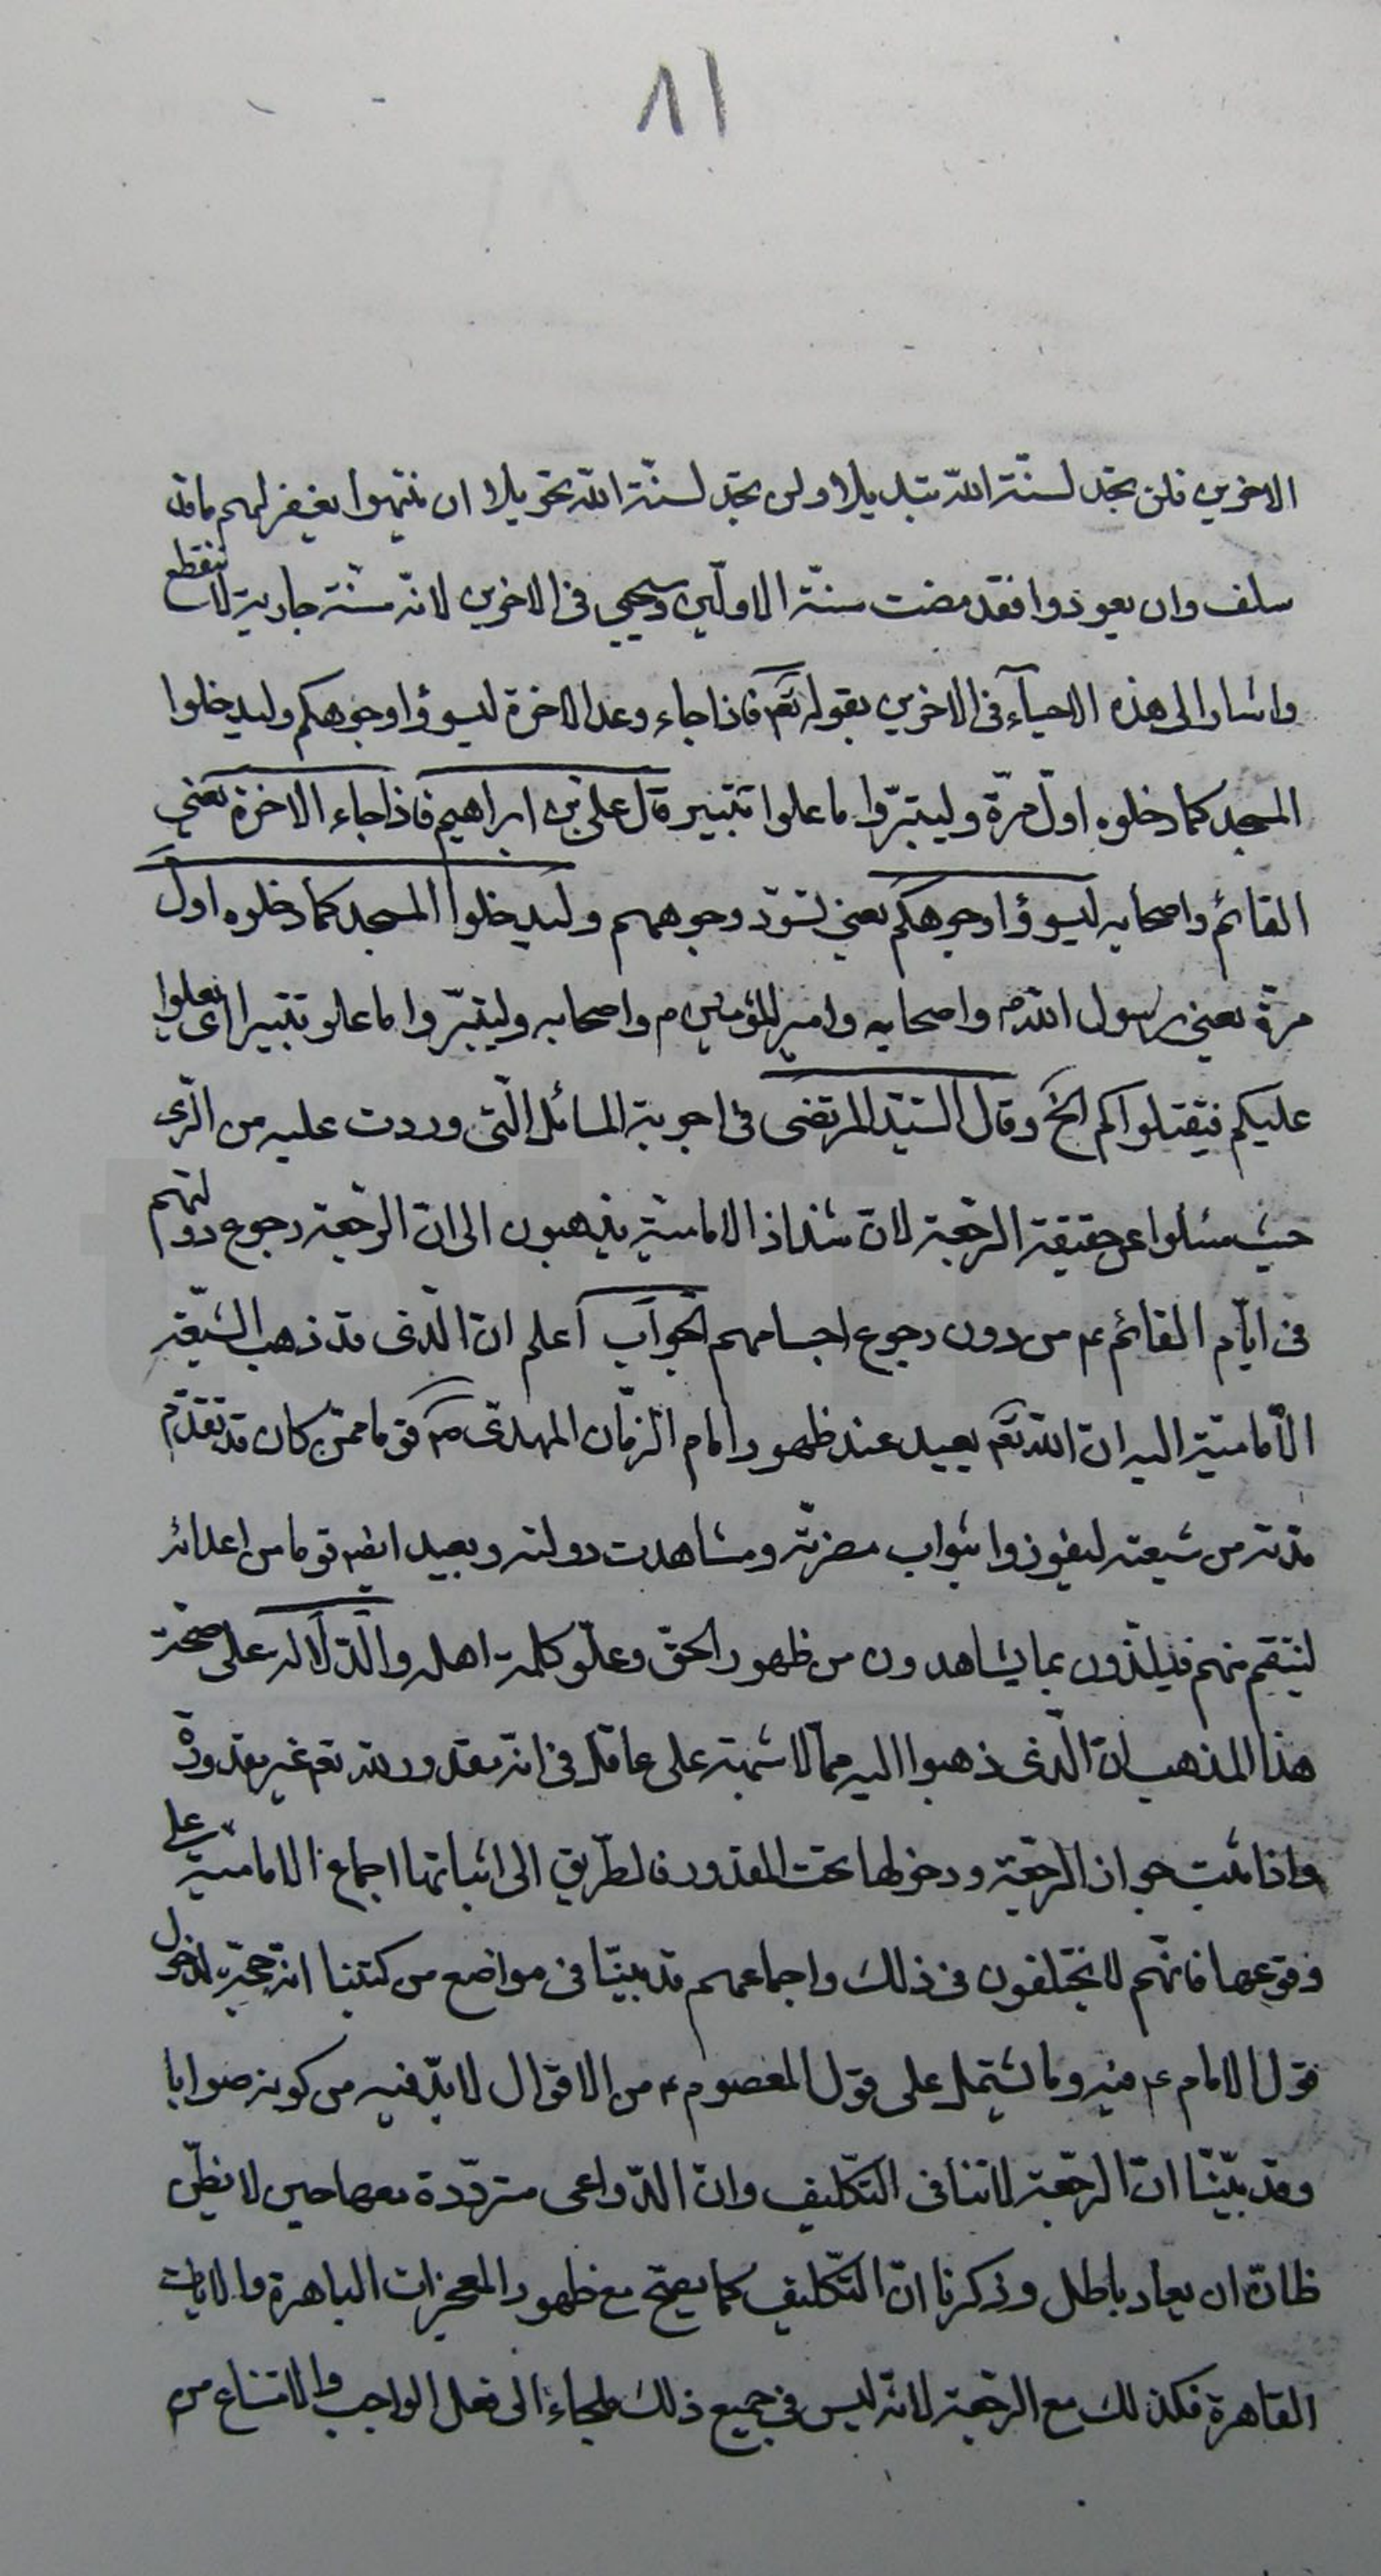 ٨١
الاخرين فلن تجد لسنّة اللّه تبديلا ولن تجد لسنّة اللّه تحويلا ان ننتهوا يغفر لهم ما قد
سلف وان يعودوا فقد مضت سنّة الاوّلين وسيجيى فى الاخرين لانّه سنّة جارية لا تنقطع
واشار الى هذه الاحياء فى الاخرين بقوله تعم فاذا جاء وعد الاخرة ليسوؤا وجوهكم وليدخلوا
المسجد كما دخلوه اوّل مرّة وليتبّروا ما علوا تتبير قال على بن ابراهيم فاذا جاء الاخرة يعنى
القائم واصحابه ليسوؤا وجوهكم يعنى تسوّد وجوههم وليدخلوا المسجد كما دخلوه اول
مرة يعنى رسول اللّه ص واصحابه وامير المؤمنين م واصحابه وليتبّروا ما علو تتبيرا اى يعلوا
عليكم فيقتلواكم الخ وقال السّيّد المرتضى فى اجوبة المسائل الّتى وردت عليه من الرّى
حيث سئلوا عن حقيقة الرّجعة لانّ شذاذ الامامية يذهبون الى انّ الرّجعة رجوع دولتهم
فى ايّام القائم ع من دون رجوع اجسامهم الجواب اعلم ان الّذى قد ذهب الشّيعة
الأمامية اليه انّ اللّه تعم يعيد عند ظهور امام الزّمان المهدى ع قوما ممّن كان قد تقدّم
مدته من شيعته ليفوزوا بثواب نصرته ومشاهدت دولته ويعيد ايضه قوما من اعدائه
لينتقم منهم فيلتذون بما يشاهدون من ظهور الحقّ وعلّو كلمة اهله والدّلالة على صحّة
هذا المذهب انّ الّذى ذهبوا اليه ممّا لا شبهة على عاقل فى انّه مقدور للّه تعم غير مقدورة
واذا ثبت جواز الرّجعة ودخولها تحت المقدور فالطّريق الى اثباتها اجماع الامامية على
وقوعها فانّهم لا يختلفون فى ذلك واجماعهم قد بيّنّا فى مواضع من كتبنا انه حجّة لدخول
قول الامام ع فيه وما يشتمل على قول المعصوم ع من الاقوال لا بدّ فيه من كونه صوابا
وقد بيّنّا انّ الرّجعة لا تنافى التّكليف وانّ الدّواعى متردّدة معها حين لا يظنّ
ظانّ ان يعاد باطل وذكرنا انّ التّكليف كما يصحّ مع ظهور المعجزات الباهرة والايات
القاهرة فكذلك مع الرّجعة لانّه ليس فى جميع ذلك ملجاء الى فعل الواجب والامتناع من